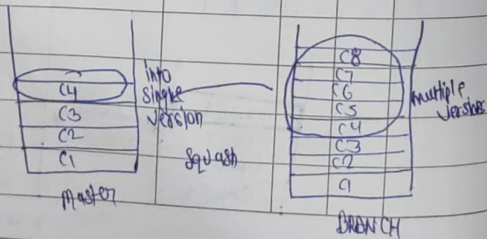 C4
C3
C2
C1
Master
into
single
version
Squash
C8
C7
C6
C5
C4
C3
C2
C1
BRANCH
multiple
versions